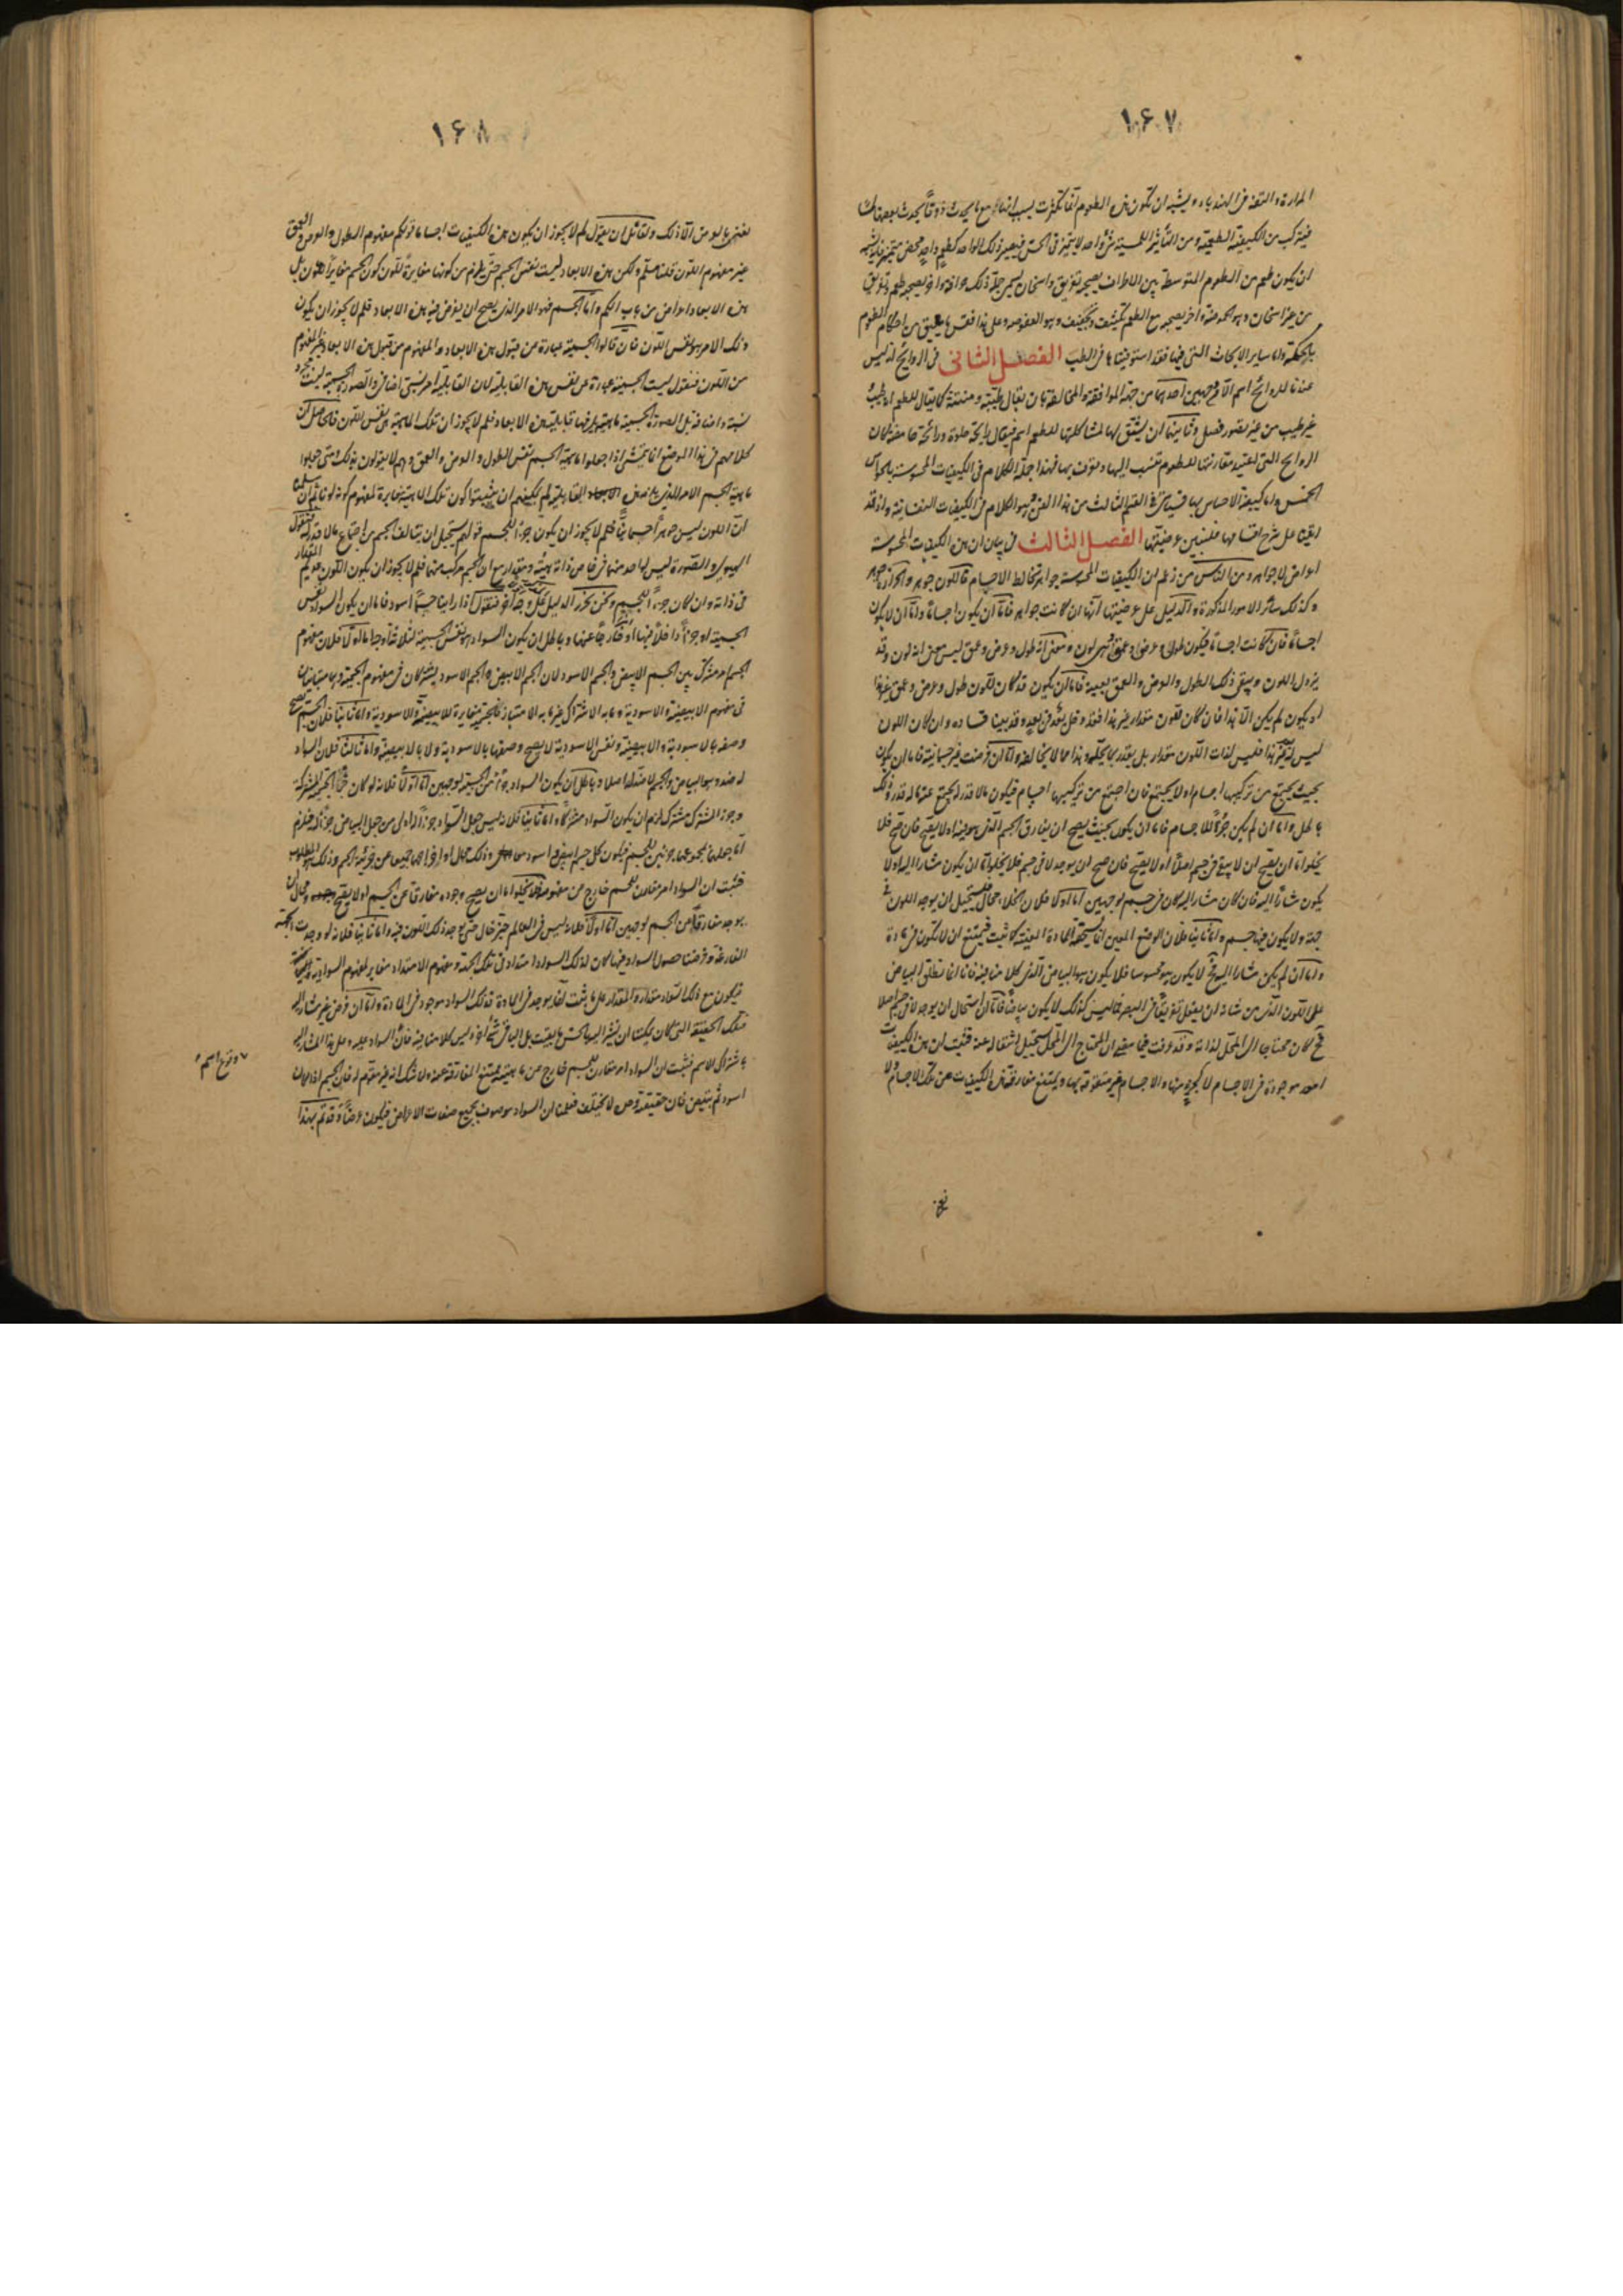 ١٠۶٧
المرارة والتفه فى الهندباء ويشبه ان تكون هذه الطعوم انما تكثرت بسبب انها مع ما يحدث ذوقا يحدث بعضها لمسا
فيتركب من الكيفية الطعمية ومن التأثير اللمسى شئ واحد لا يتميز فى الحس فيصير ذلك الواحد كطعم واحد محض متميز فانه يشبه
ان يكون طعم من الطعوم المتوسطة بين الاطراف يصحبه تفريق واسخان يسمى جملة ذلك حرافة واخر يصحبه طعم وتفريق
من غير اسخان وهو الحموضة واخر يصحبه مع الطعم تكثيف وتجفيف وهو العفوصة وعلى هذا فقس ما يليق من احكام الطعوم
بالحكمة واما ساير الابحاث التى فيها فقد استوفيناها فى الطب الفصل الثانى فى الروائح ليس
عندنا للروائح اسم الا من وجهين احدهما من جهة الموافقة والمخالفة بان يقال طيبة ومنتنة كما يقال للطعم انه طيب
غير طيب من غير تصور فصل وثانيهما ان يشتق لها لمشاكلتها للطعم اسم فيقال رايحة حلوة ورائحة حامضة كان
الروايح التى اعتيد مقارنتها للطعوم تنسب اليها وتعرف بها فهذا جملة الكلام فى الكيفيات المحسوسة بالحواس
الخمس واما كيفية الاحساس بها فسيأتى فى القسم الثالث من هذا الفن وهو الكلام فى الكيفيات النفسانية واذ قد
اتينا على شرح اقسامها فلنبين عرضيتها الفصل الثالث فى بيان ان هذه الكيفيات المحسوسة
اعراض لا جواهر ومن الناس من زعم ان الكيفيات المحسوسة جواهر تخالط الاجسام فاللون جوهر والحرارة جوهر
وكذلك سائر الامور المذكورة والدليل على عرضيتها انها ان كانت جواهر فاما ان يكون اجساما واما ان لا يكون
اجساما فان كانت اجساما فيكون طول وعرض وعمق ومعنى انه طول وعرض وعمق ليس معنى انه لون وقد
يزول اللون ويبقى ذلك الطول والعرض والعمق بعينه فاما ان يكون قد كان للون طول وعرض وعمق غير هذا
او يكون لم يكن الا هذا فان كان للون مقدار غير هذا فقد دخل بعد فى بعد وقد بينا فساده وان كان اللون
ليس له غير هذا فليس لذات اللون مقدار بل يتقدر بما يحله وهذا مما لا يخالفه واما ان فرضت غير جسمانية فاما ان يكون
بحيث يجتمع من تركيبها اجسام او لا يجتمع فان اجتمع من تركيبها اجسام فيكون ما لا قدر له يجتمع عنه ما له قدر وذلك
باطل واما ان لم يكن جزءا للاجسام فاما ان يكون بحيث يصح ان يفارق الجسم الذى هو فيه او لا يصح فان صح فلا
يخلو اما ان يصح ان لا يبقى فى جسم اصلا او لا يصح فان صح ان يوجد لا فى جسم فلا يخلو اما ان يكون مشارا اليه او لا
يكون مشارا اليه فان كان مشارا اليه كان فى جسم لوجهين اما اولا فلان الخلاء محال فيستحيل ان يوجد اللون فى
جهة ولا يكون فيها جسم واما ثانيا فلان الوضع المعين انما تستحقه المادة المعينة كما ثبت فيمتنع ان لا تكون فى مادة
واما ان لم يكن مشارا اليه فح لا يكون هو محسوسا فلا يكون هو البياض الذى كلامنا فيه فانا انما نطلق البياض
على اللون الذى من شانه ان يفعل تفريقا فى البصر فما ليس كذلك لا يكون بياضا فاما ان استحال ان يوجد لا فى جسم اصلا
فح كان محتاجا الى المحل لذاته وقد عرفت فيما مضى ان المحتاج الى المحل يستحيل انتقاله عنه فثبت ان هذه الكيفيات
امور موجودة فى الاجسام لا كجزء منها والاجسام غير متقومة بها ويمتنع مفارقة هذه الكيفيات عن تلك الاجسام ولا
١٠۶٨
نعنى بالعرض الا ذلك ولقائل ان يقول لم لا يجوز ان يكون هذه الكيفيات اجساما قولكم مفهوم الطول والعرض والعمق
غير مفهوم اللون قلنا مسلم ولكن هذه الابعاد ليست نفس الجسم حتى يلزم من كونها مغايرة للون كون الجسم مغايرا للون بل
هذه الابعاد اعراض من باب الكم واما الجسم فهو الامر الذى يصح ان يفرض فيه هذه الابعاد فلم لا يجوز ان يكون
ذلك الامر هو نفس اللون فان قالوا الجسمية عبارة عن قبول هذه الابعاد والمفهوم من قبول هذه الابعاد غير المفهوم
من اللون فنقول ليست الجسمية عبارة عن نفس هذه القابلية لان القابلية امر نسبى اضافى والصورة الجسمية ليست مجرد
نسبة واضافة بل الصورة الجسمية ماهية يلزمها قابلية هذه الابعاد فلم لا يجوز ان تلك الماهية هى نفس اللون فالحاصل ان
كلامهم فى هذا الموضع انما يتمشى اذا جعلوا ماهية الجسم نفس الطول والعرض والعمق وهم لا يقولون بذلك متى جعلوا
ماهية الجسم الامر الذى يلزمه هذه القابلية لم يمكنهم ان يثبتوا كون تلك الماهية مغايرة لمفهوم كونه لونا سلمنا
ان اللون ليس جوهرا جسمانيا فلم لا يجوز ان يكون جزءا للجسم قولهم يستحيل ان يتالف الجسم من اجتماع ما لا قدر له فنقول
الهيولى والصورة ليس لواحد منهما فى خاص ذاته هيئة ومقدار مع ان الجسم مركب منهما فلم لا يجوز ان يكون اللون عديم المقدار
فى ذاته وان كان جزءا للجسم ونحن نحرر الدليل على وجه آخر فنقول اذا راينا جسما اسود فاما ان يكون السواد نفس
الجسمية او جزءا داخلا فيها او خارجا عنها وباطل ان يكون السواد هو نفس الجسمية لثلاثة اوجه اما اولا فلان مفهوم
الجسم امر مشترك بين الجسم الابيض والجسم الاسود لان الجسم الابيض والجسم الاسود يشتركان فى مفهوم الجسمية ويتباينان
فى مفهوم الابيضية والاسودية وما به الاشتراك غير ما به الامتياز فالجسمية مغايرة للابيضية والاسودية واما ثانيا فلان الجسم يصح
وصفه بالاسودية والابيضية ونفس الاسودية لا يصح وصفها بالاسودية ولا بالابيضية واما ثالثا فلان السواد
له ضد وهو البياض والجسم لا ضد له اصلا وباطل ان يكون السواد جزءا من الجسمية لوجهين اما اولا فلانه لو كان جزءا من الجسمية المشتركة
وجزء المشترك مشترك لزم ان يكون السواد مشتركا واما ثانيا فلانه ليس جعل السواد جزءا له اولى من جعل البياض جزءا له فيلزم
اما جعلهما بمجموعهما جزئين للجسم فيكون كل جسم ابيض اسود معا وذلك محال او اخراجهما جميعا عن جزئية الجسم وذلك هو المطلوب
فثبت ان السواد امر مقارن للجسم خارج عن مفهومه فلا يخلو اما ان يصح وجوده مفارقا عن الجسم او لا يصح ومحال ان
يوجد مفارقا عن الجسم لوجهين اما اولا فلانه ليس فى العالم حيز خال حتى يوجد ذلك اللون فيه واما ثانيا فلانه لو وجدت الجهة
الفارغة وفرضنا حصول السواد فيها لكان لذلك السواد امتداد فى تلك الجهة ومفهوم الامتداد مغاير لمفهوم السوادية
فيكون مع ذلك السواد مقدار والمقدار على ما ثبت انما يوجد فى المادة فذلك السواد موجود فى المادة واما ان فرض غير مشار اليه
فتلك الحقيقة التى كان يمكننا ان نشير اليها بالحس ما بقيت بل الباقى شئ آخر وليس كلامنا فيه فان السواد على هذا المشار اليه
باشتراك الاسم فثبت ان السواد امر مقارن للجسم خارج عن ماهيته يمتنع المفارقة عنه ولا شك انه غير مقوم له فان الجسم اذا كان
اسود ثم يبيض فان حقيقته لا تختلف فعلمنا ان السواد موصوف بجميع صفات الاعراض فيكون عرضا وقد تم بهذا